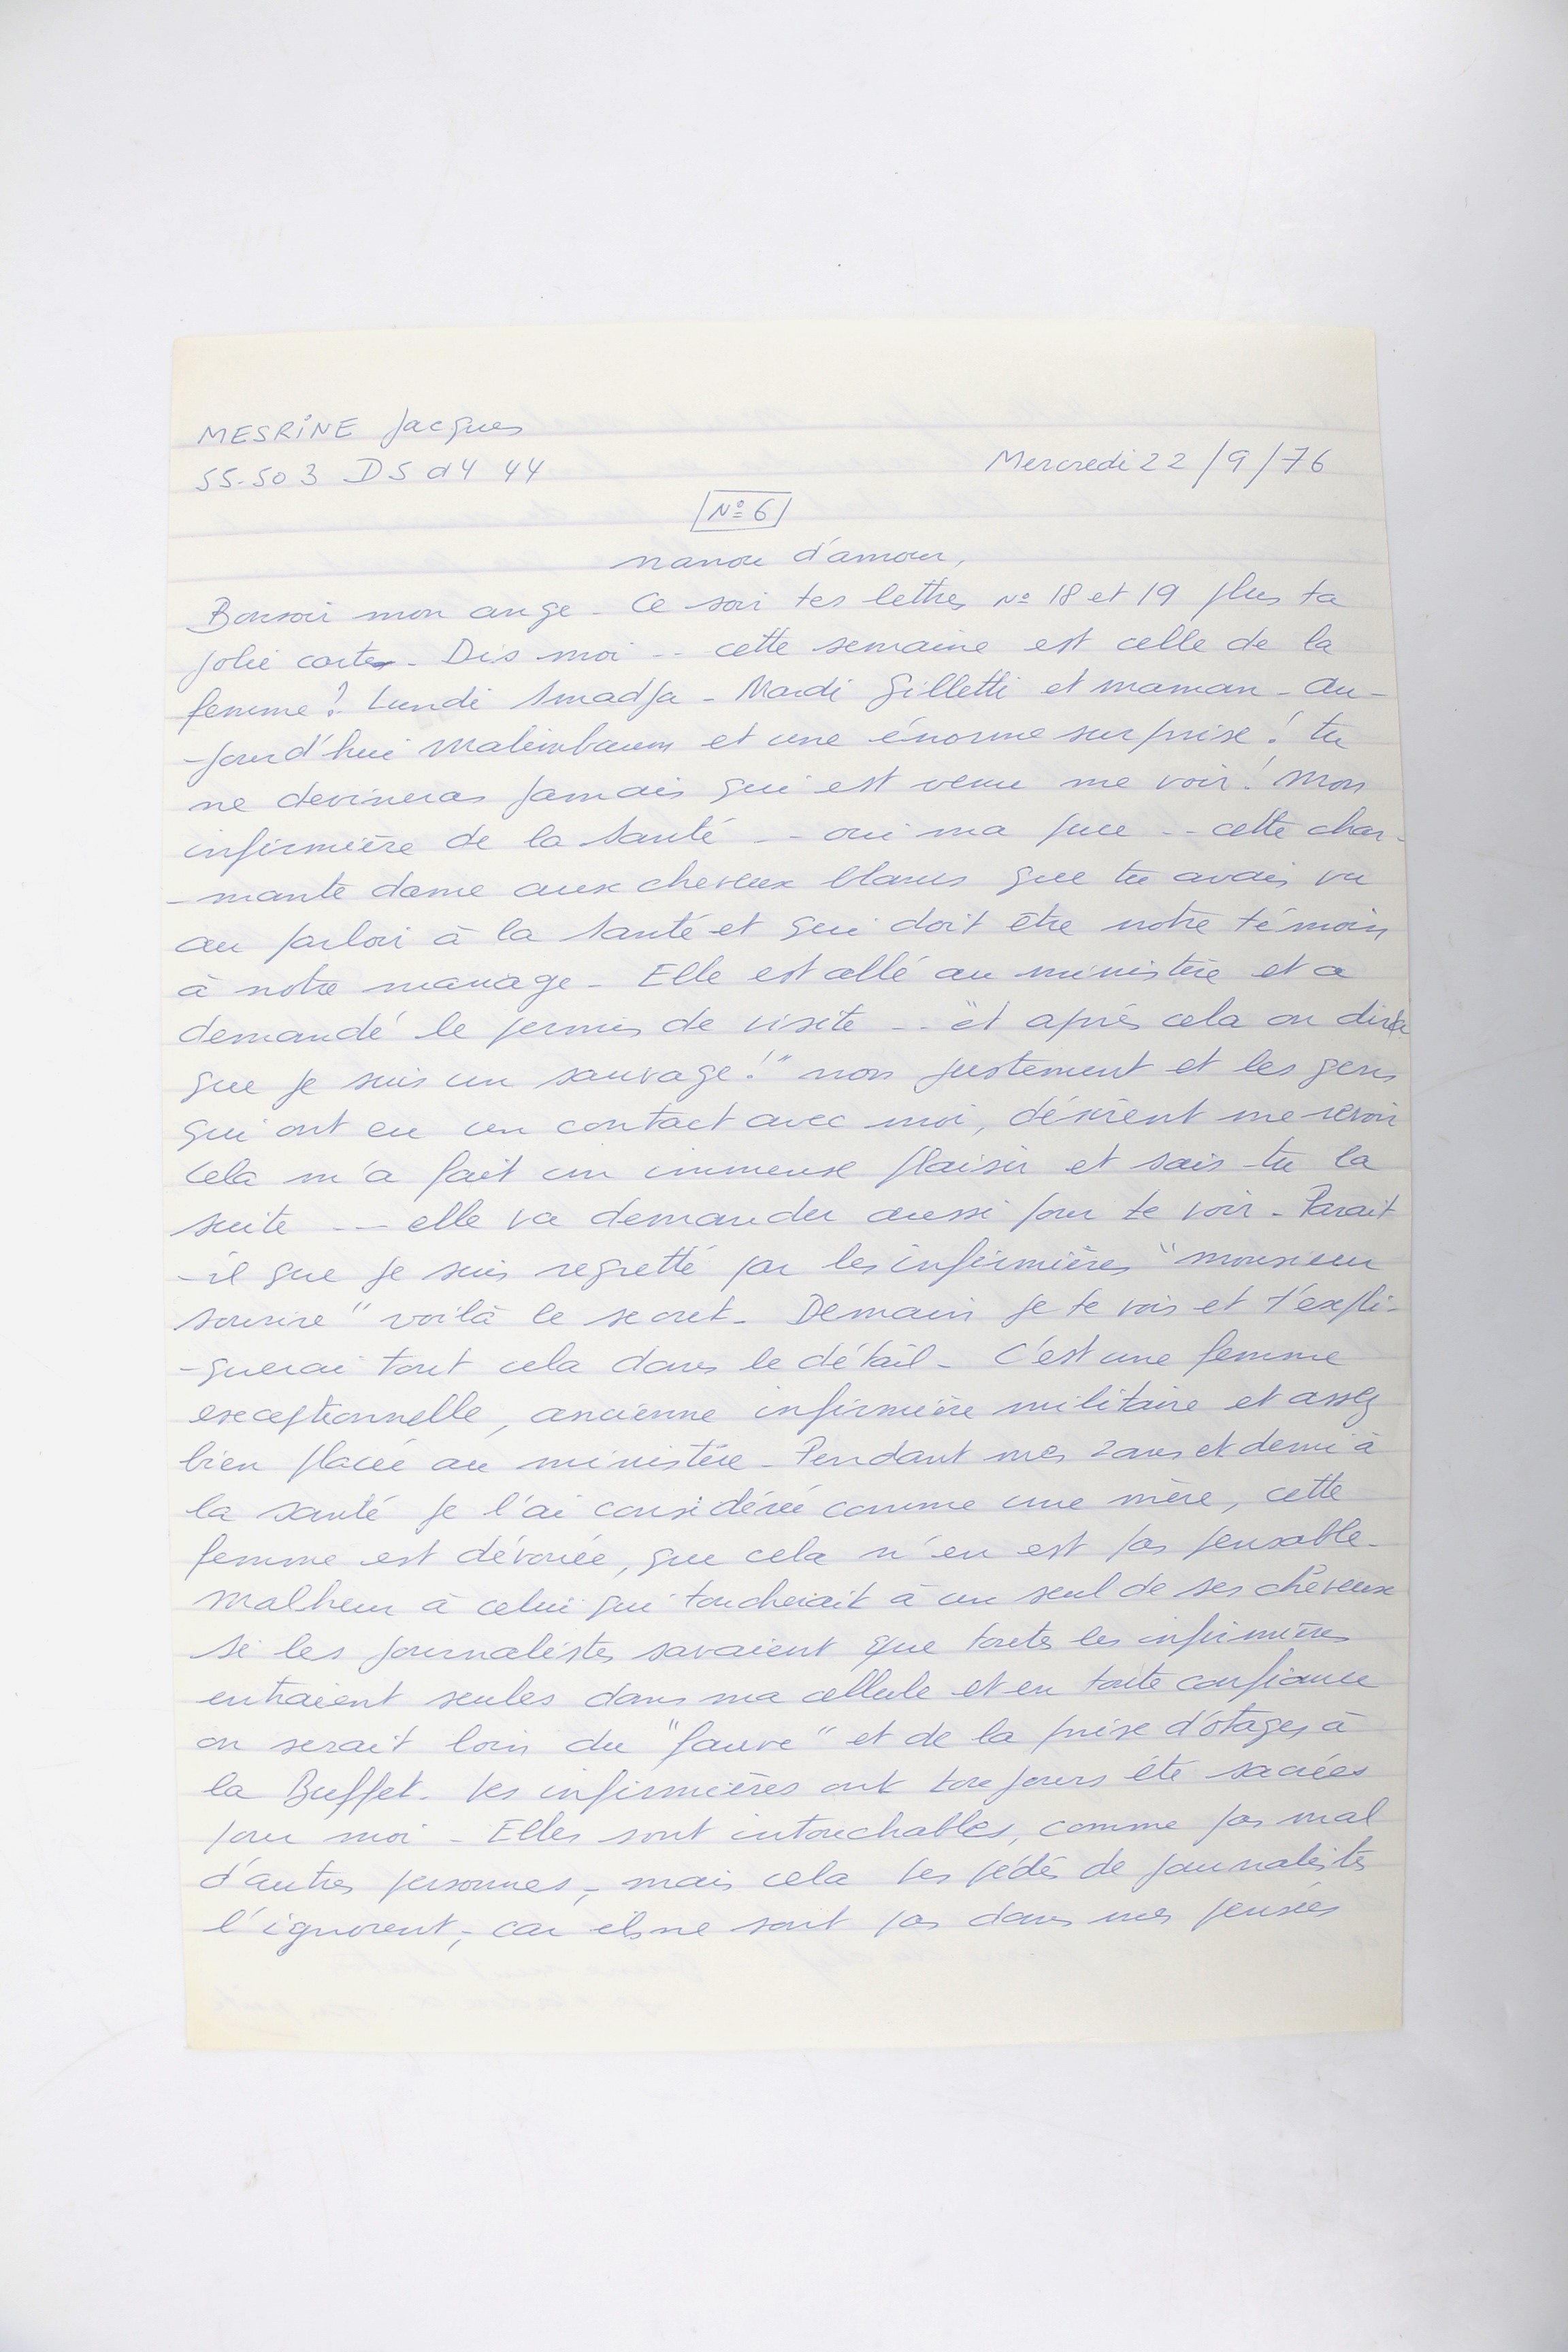 MESRINE Jacques
55.503 D5 d4 44
Mercredi 22/9/76
N° 6
nanou d'amour,
Bonsoir mon ange - Ce soir tes lettres N° 18 et 19 plus ta
jolie carte - Dis moi -- cette semaine est celle de la
femme ? Lundi Smadja - Mardi Gilletti et maman - Au-
-jourd'hui Maleinbaum et une énorme surprise ! tu
ne devineras jamais qui est venu me voir ! Mon
infirmière de la Santé -- oui ma puce -- cette char-
-mante dame aux cheveux blancs que tu avais vu
au parloir à la Santé et qui doit être notre témoin
à notre mariage - Elle est allé au ministère et a
demandé le permis de visite -- "et après cela on dira
que je suis un sauvage !" non justement et les gens
qui ont eu un contact avec moi, désirent me revoir
Cela m'a fait un immense plaisir et sais-tu la
suite -- elle va demander aussi pour te voir - Parait
-il que je suis regretté par les infirmières "monsieur
sourire" voilà le secret - Demain je te vois et t'expli-
-querai tout cela dans le détail - C'est une femme
exceptionnelle, ancienne infirmière militaire et assez
bien placée au ministère - Pendant mes 2 ans et demi à
la santé je l'ai considérée comme une mère, cette
femme est dévouée, que cela n'en est pas pensable -
Malheur à celui qui toucherait à un seul de ses cheveux
Si les journalistes savaient que toutes les infirmières
entraient seules dans ma cellule et en toute confiance
on serait loin du "fauve" et de la prise d'otages à
la Buffet. Les infirmières ont toujours été sacrées
pour moi - Elles sont intouchables, comme pas mal
d'autres personnes, mais cela les pédés de journalistes
l'ignorent, car ils ne sont pas dans mes pensées